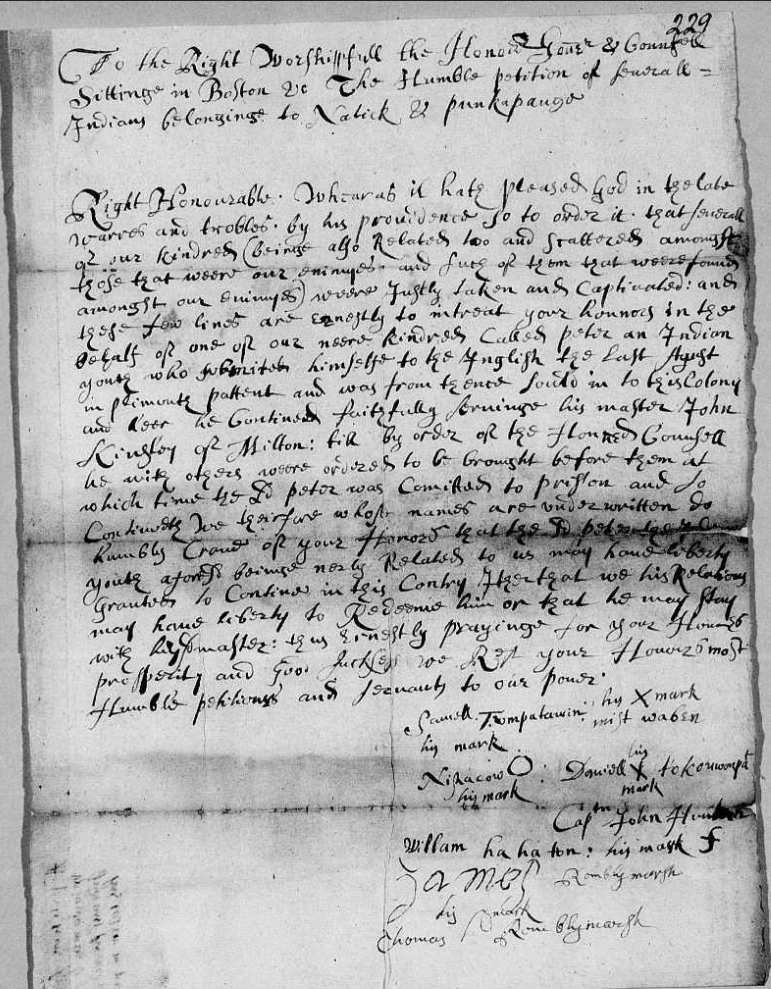 229
To the Right Worshipfull the Honord Gouer & Counsell
Sittinge in Boston &c The Humble petition of seuerall =
Indians belonginge to Natick & punkapauge
Right Honourable. Wheareas it hath pleased God in the late
warres and trobles. by his prouidence so to order it. that seuerall
of our kindred (beinge also Related too and scattered amongst
those that weere our enimyes. and such of them that weere found
amongst our enimyes) weere Justly taken and Captiuated: and
these few lines are ernestly to intreat your honnors in the
behalf of one of our neere kindred Called peter an Indian
youth who submited himselfe to the Inglish the last Agust
in plimouth pattent and was from thence sould in to this Colony
and heer he Contineued faithfully seruinge his master John
Kinsley of Milton: till by order of the Honned Counsell
he with others weere ordered to be brought before them at
which time the sd peter was Comitted to prisson and so
Contineweth we theirfore whose names are vnderwritten do
humbly Craue of your Honors that the sd peter the
youth aforesd beinge nerly Related to us may haue liberty
granted to Contineu in this Contry that we his Relations
may haue liberty to Redeeme him or that he may stay
with his master: thus ernestly prayinge for your Honours
prosperity and Good suckses we Rest your Honours most
Humble petitioners and seruants to our power.
Samell. Tompatawin: his X mark
his mark mist waben
Nihacow O: Daniell X tokouwompa
his mark his mark
Capt John Hunter
Willam hahaton: his mark f
James Romblymarsh
his mark
Thomas Romblymarsh